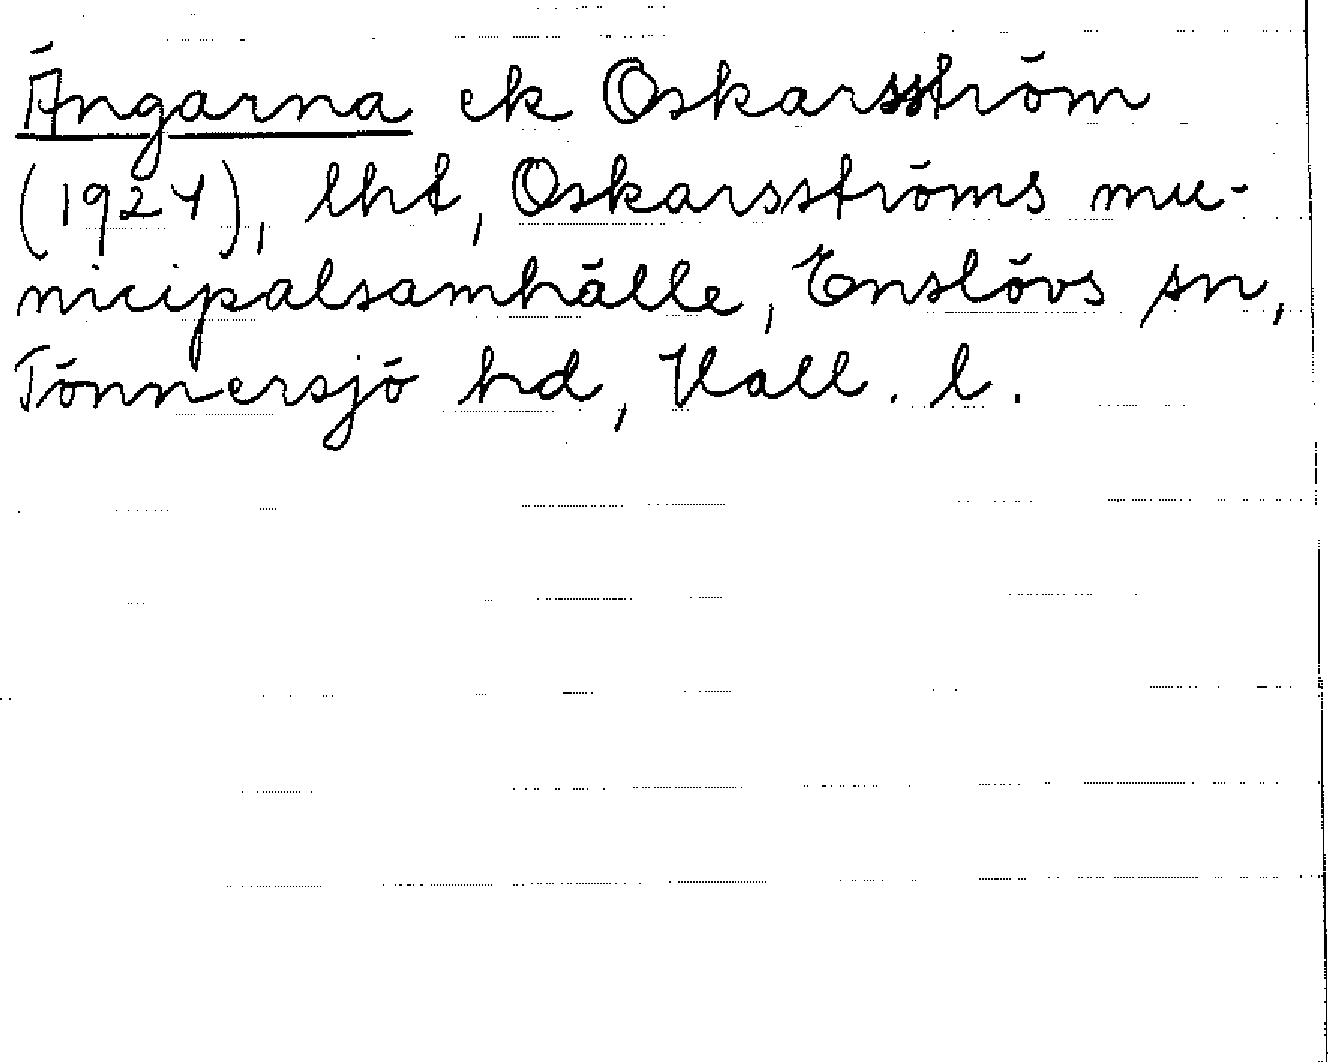 Ängarna ek Oskarsström
(1924), lht, Oskarsströms mu-
nicipalsamhälle, Enslövs sn,
Tönnersjö hd, Hall. l.